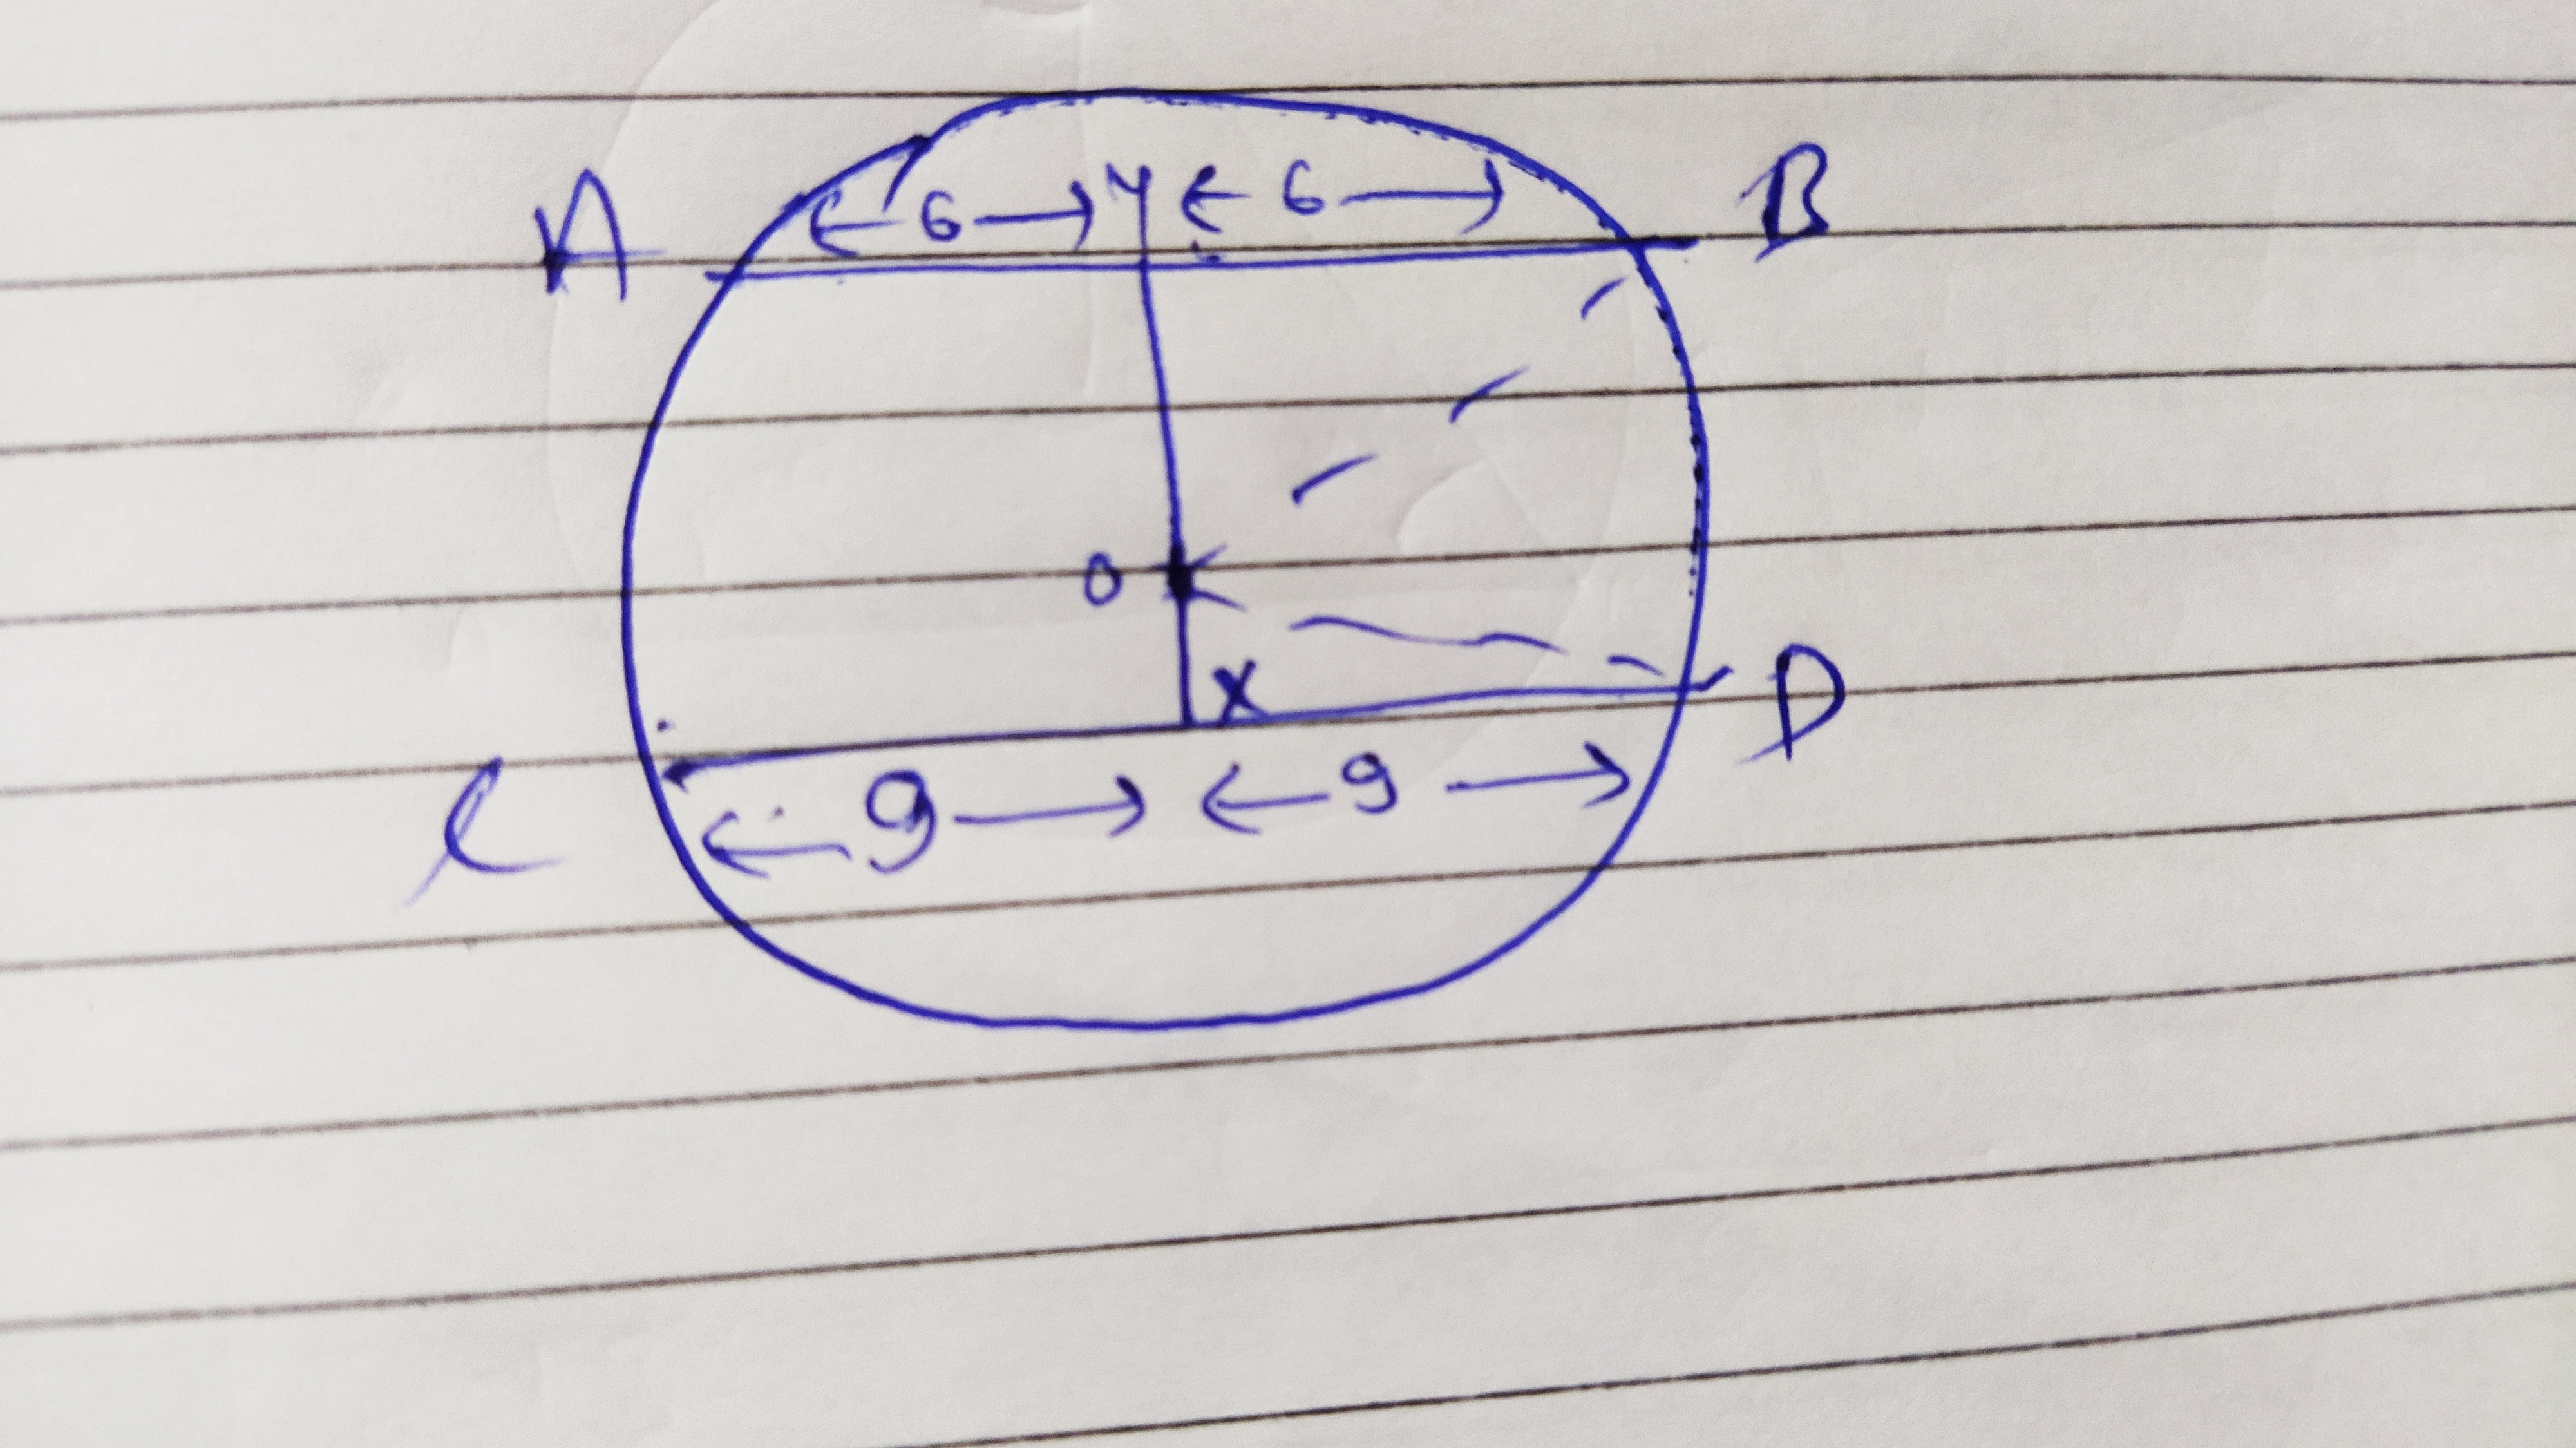 A ← 6 → Y ← 6 → B
O
X D
C ← 9 → ← 9 →